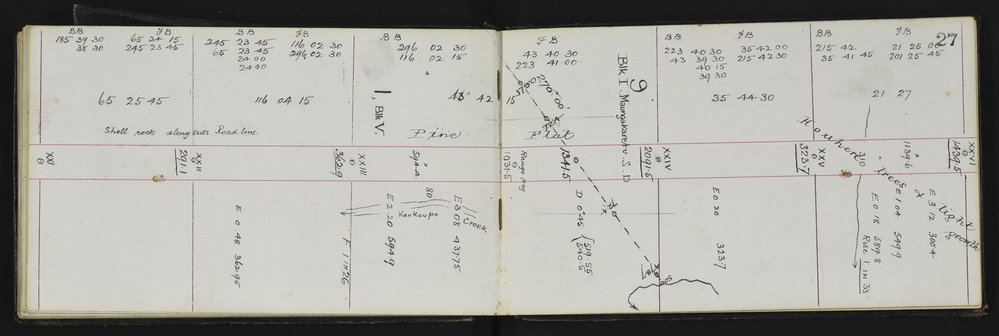 27
BB FB
185 39 30 65 24 15
38 30 245 23 45
65 25 45
BB FB
245 23 45 116 02 30
65 23 45 296 02 30
24 00
24 00
116 04 15
BB
296 02 30
116 02 15
1, Blk V
42 15
FB
43 40 30
223 41 00
270° 00'
9
Blk I. Maungakareru S.D
BB FB
223 40 30 35 42 00
43 39 30 215 42 30
40 15
39 30
35 44 30
BB FB
215 42 21 25 00
35 41 45 201 25 45
21 27
Shell rock alongside Road line
Pine Flat
XXI
XXII
2911
XXIII
362.9
594.2
Range peg
1031.5
1341.5
XXIV
2091.5
XXV
323.7
310
1139.6
XXVI
1439.5
Houhere trees
light growth
E 0 48 362.95
F 1 IN 26
E 2 20 594.9
80
Koukoupo
Creek
E 3 08 437.75
D 0° 45 519.55
540.5
500
E 0 20 323.7
E 0 18 589.8
Rise 1 IN 33
E 1 04 549.9
E 3 12 300.4